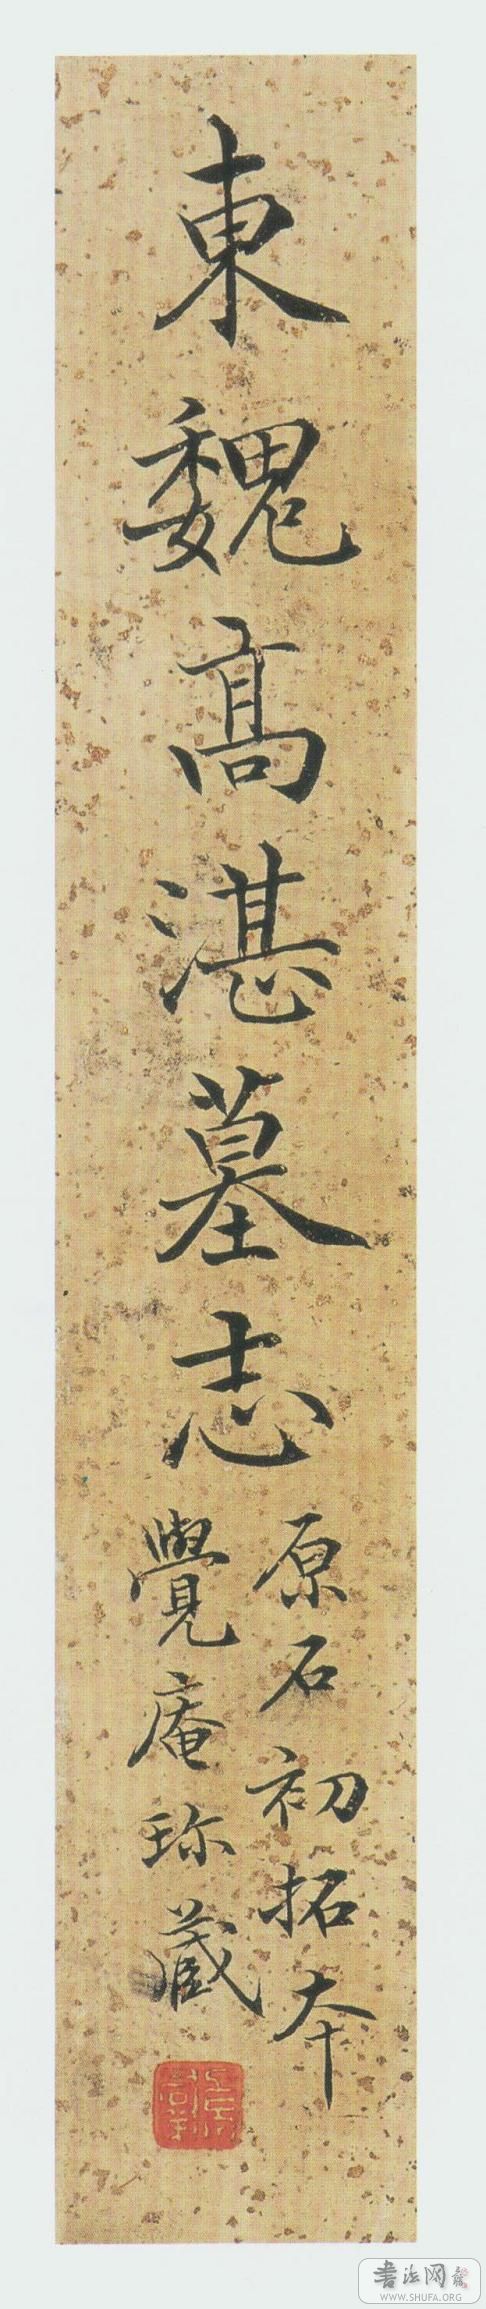 東魏高湛墓志
原石初拓本
覺庵珎藏
书法网
WWW.SHUFA.ORG